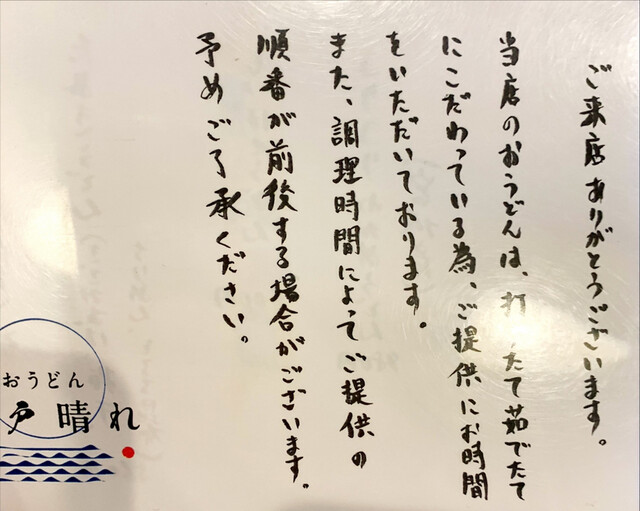 ご来店ありがとうございます。
当店のおうどんは、打たて茹でたて
にこだわっている為、ご提供にお時間
をいただいております。
また、調理時間によってご提供の
順番が前後する場合がございます。
予めご了承ください。
おうどん
戸晴れ